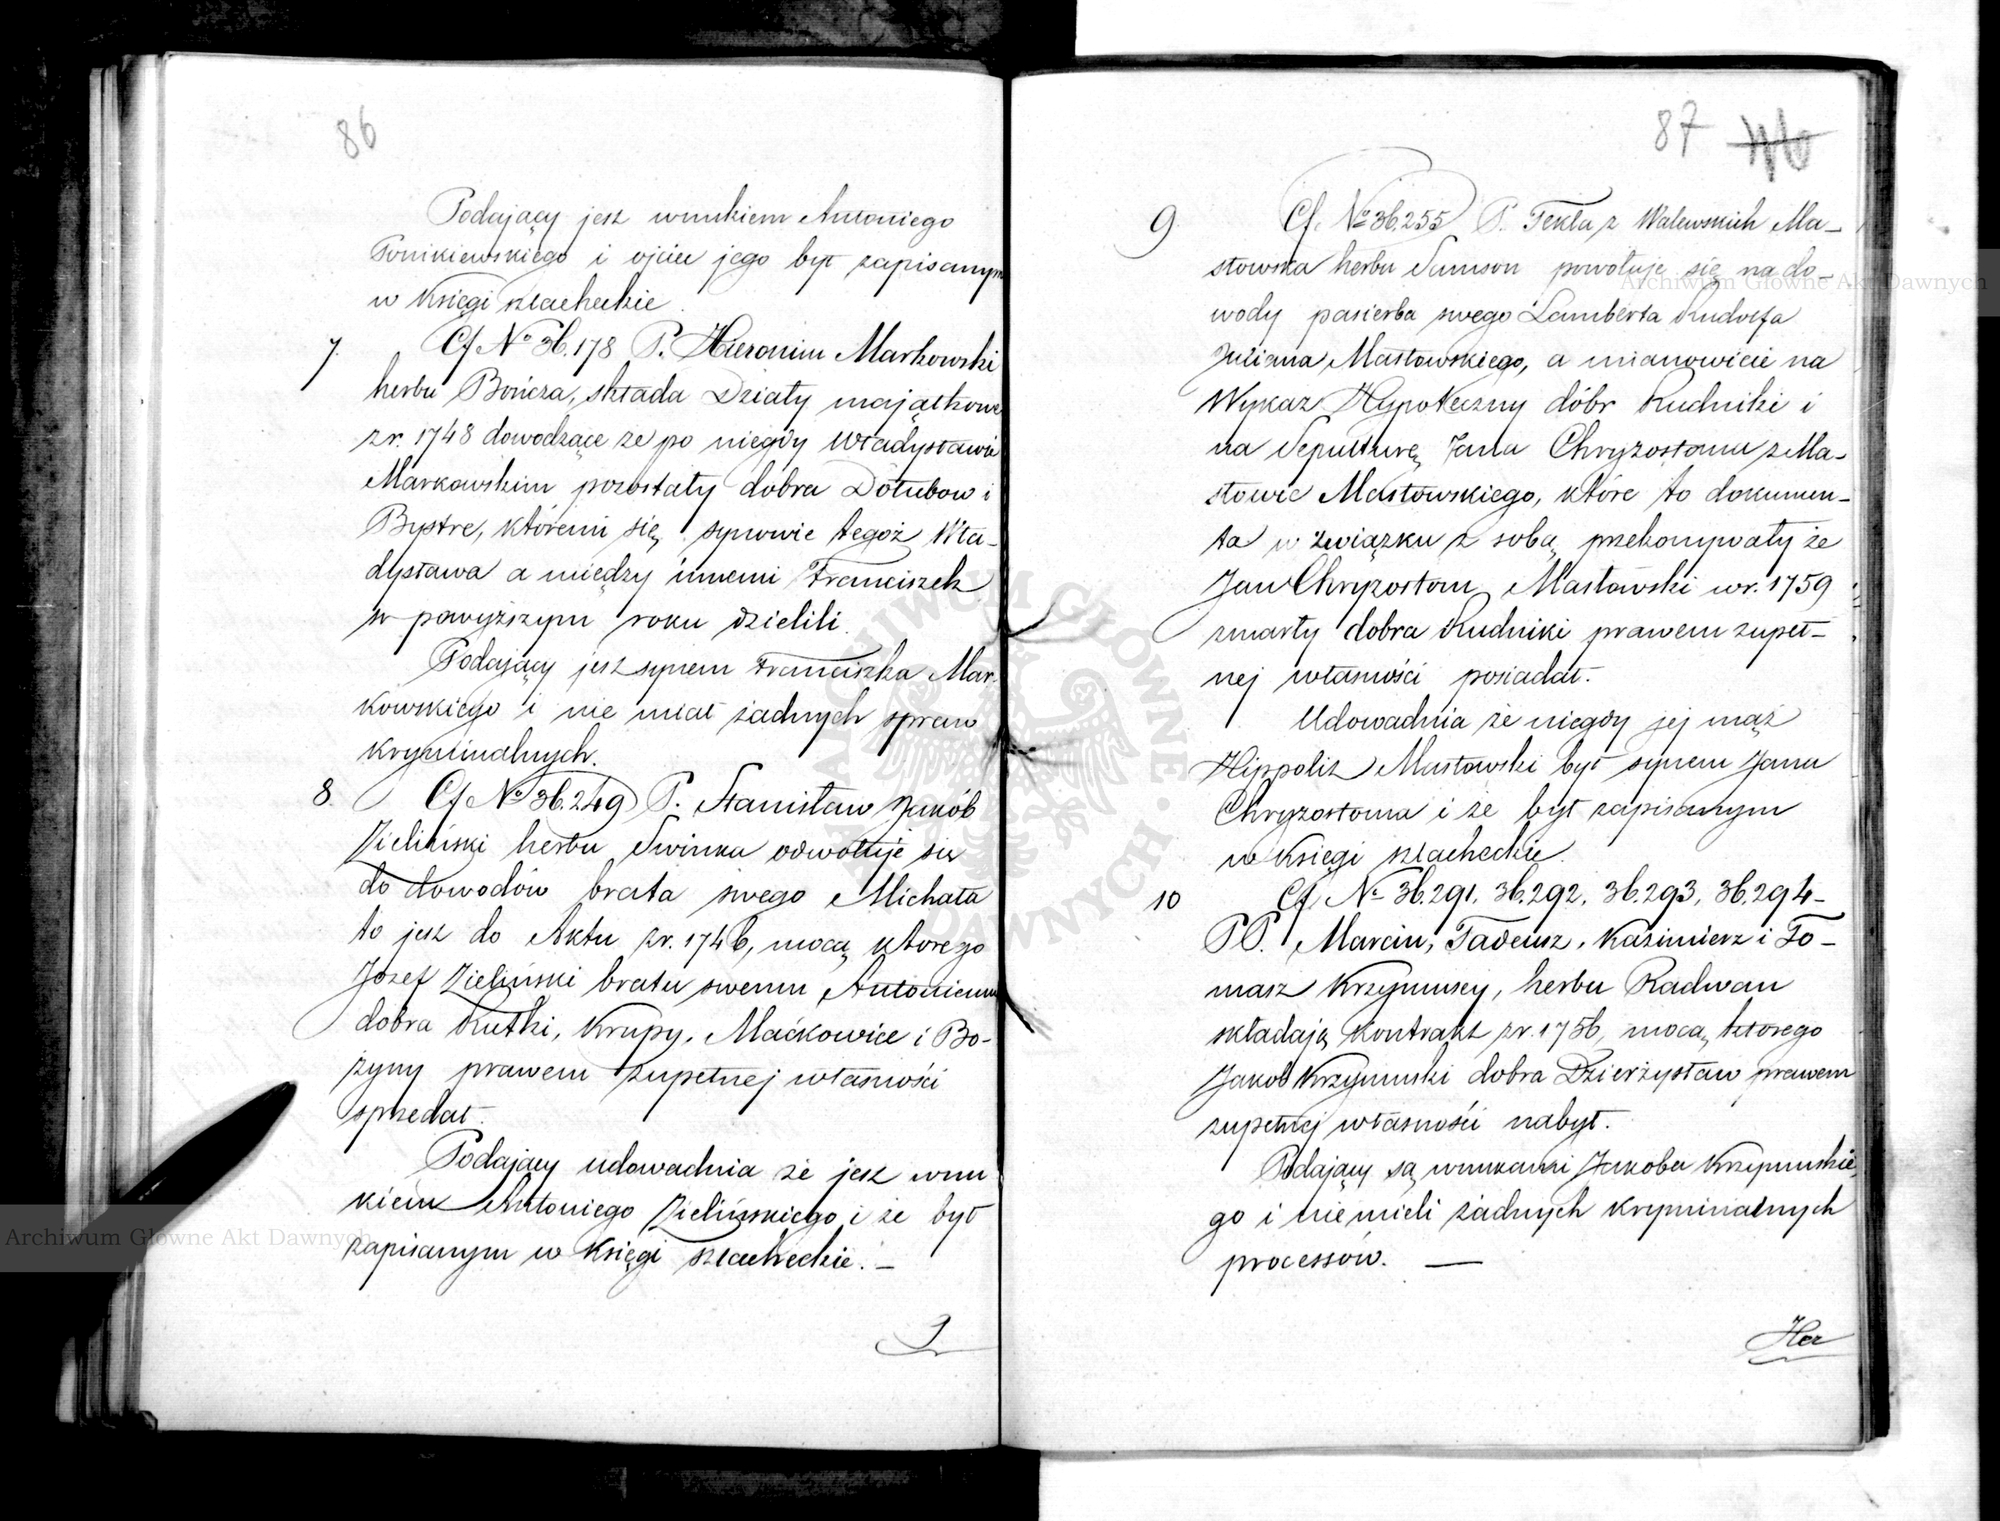 86
Podający jest wnukiem Antoniego
Ponikiewskiego i ojciec jego był zapisanym
w Księgi szlacheckie.
7. Cf No 36.178 P. Hieronim Markowski
herbu Bończa, składa Działy majątkowe
z r. 1748 dowodzące że po niegdy Władysławie
Markowskim pozostały dobra Dołubow i
Bystre, któremi się synowie tegoż Wła-
dysława a między innemi Franciszek
w powyższym roku dzielili.
Podający jest synem Franciszka Mar-
kowskiego i nie miał żadnych spraw
kryminalnych.
8 Cf No 36.249 P. Stanisław Jakób
Zieliński herbu Świnka odwołuje się
do dowodów brata swego Michała
to jest do Aktu z r. 1746, mocą którego
Józef Zieliński bratu swemu Antoniemu
dobra Rutki, Krupy, Maćkowice i Bo-
żyny prawem zupełnej własności
sprzedał.
Podający udowadnia że jest wnu
kiem Antoniego Zielińskiego i że był
zapisanym w Księgi szlacheckie. —
87
9. Cf. No 36.255 P. Tekla z Walewskich Ma-
słowska herbu Samson powołuje się na do-
wody pasierba swego Lamberta Rudolfa
Juliana Masłowskiego, a mianowicie na
Wykaz Hypoteczny dóbr Rudniki i
na Sepulturę Jana Chryzostoma z Ma-
słowic Masłowskiego, które to dokumen-
ta w związku z sobą przekonywały że
Jan Chryzostom Masławski w r. 1759
zmarły dobra Rudniki prawem zupeł-
nej własności posiadał.
Udowadnia że niegdy jej mąż
Hippolit Masłowski był synem Jana
Chryzostoma i że był zapisanym
w Księgi szlacheckie.
10 Cf. No 36.291, 36.292, 36.293, 36.294-
PP. Marcin, Tadeusz, Kazimierz i To-
masz Krzymuscy, herbu Radwan
składają Kontrakt z r. 1756, mocą którego
Jakób Krzymuski dobra Dzierzysław prawem
zupełnej własności nabył.
Podający są wnukami Jakoba Krzymuskie
go i nie mieli żadnych kryminalnych
processów. —
Her
Archiwum Główne Akt Dawnych
Archiwum Główne Akt Dawnych
ARCHIWUM GŁÓWNE AKT DAWNYCH